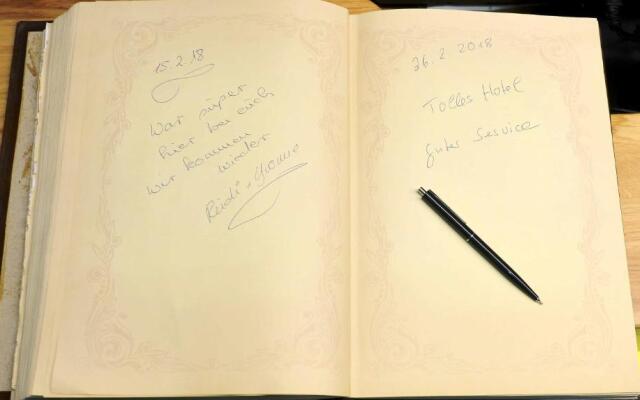 15.2.18
War super
hier bei euch
wir kommen
wieder
Ruedi + Yvonne
26.2.2018
Tolles Hotel
gutes Service